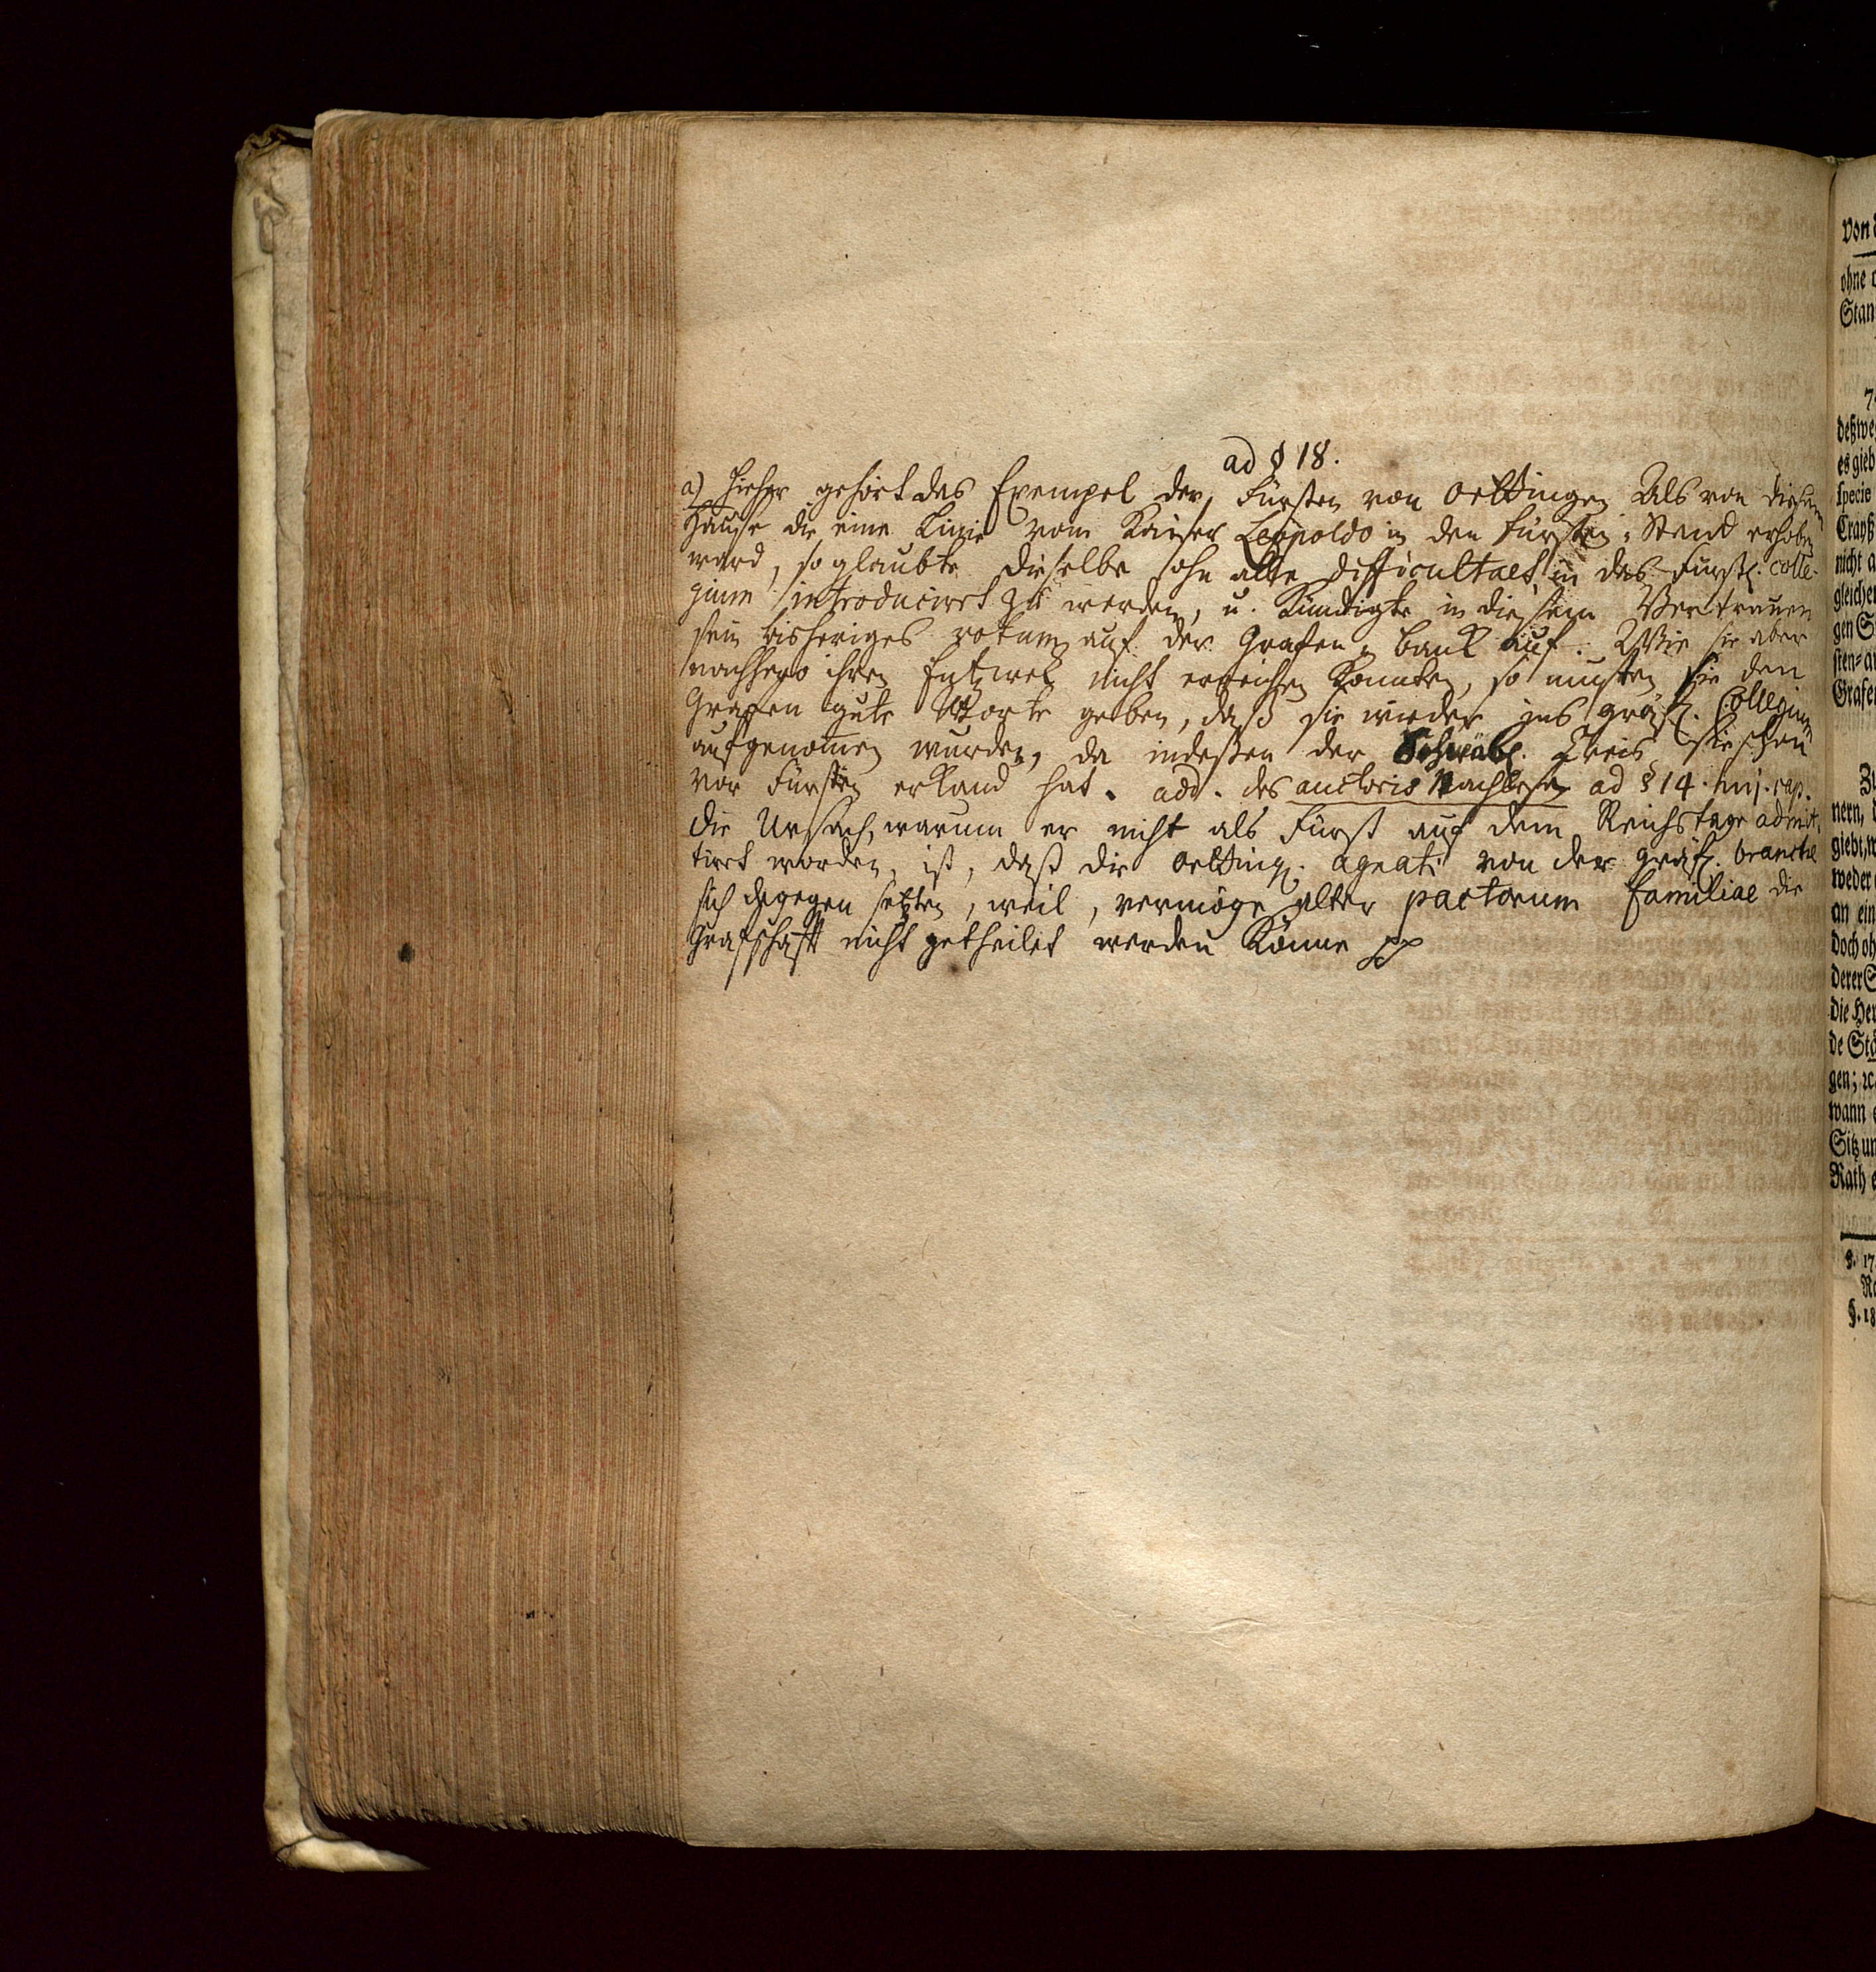 ad § 18.
a) Hieher gehört das Exempel der Fürsten von Oettingen. Als von diesem
Hause die eine Linie vom Kaiser Leopoldo in den Fürsten-Stand erhoben
ward, so glaubte dieselbe ohne alle difficultaet in das Fürstl. colle-
gium introducirt zu werden, u. kündigte in diesem Vertrauen
sein bisheriges votum auf der Grafen-banck auf. Wie sie aber
nachhero ihren Entzweck nicht erreichen konnten, so musten sie den
Grafen gute Worte geben, daß sie wieder ins gräfl. Collegium
aufgenommen wurden, da indeßen der Schwäb. Kreis sie schon
vor Fürsten erkand hat. add. des auctoris Nachlese ad § 14. huj. cap.
die Ursach, warum er nicht als Fürst auf dem Reichstage admit-
tirt worden, ist, daß die Oetting. agnati von der gräfl. branche
sich dagegen setzten, weil, vermöge alter pactorum familiae die
Grafschafft nicht getheilet werden könne
Von
ohne
Stan
deßwe
es gieb
specie
Crayß
nicht a
gleicher
gen S
sten-a
Grafe
nern,
giebt, w
weder
an ein
doch oh
derer S
die Her
de Stä
gen; ꝛc.
wann
Sitz un
Rath
§. 17
§. 18